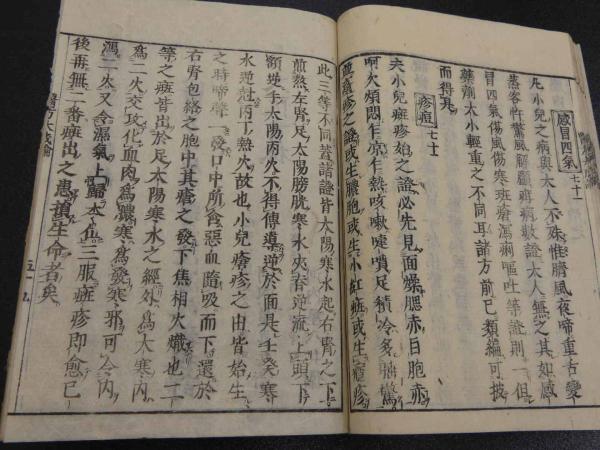 感冒四氣 七十一
凡小兒之病與大人不殊惟臍風夜啼重舌變
蒸客忤驚風解顱疳病數證大人無之其如感
冒四氣傷風傷寒班瘡瀉痢嘔吐等證則一但
藥劑大小輕重之不同耳諸方前已類編可披
而得耳
疹痘 七十
夫小兒班疹始之證必先見面燥腮赤目胞赤
呵欠煩悶乍凉乍熱咳嗽嚏噴足稽冷多睡驚
並瘡疹之證或生膿胞或生小紅班或生癮疹
此三等不同蓋諸證皆太陽寒水起右腎之下
煎熱左腎足太陽膀胱寒水夾脊逆流上頭下
額逆手太陽丙火不得傳道逆於面是壬癸寒
水逆尅丙丁熱火故也小兒瘡疹之由皆始生
之時啼聲一發口中所含惡血隨吸而下還於
右腎包絡之胞中其瘡之發下焦相火熾也二
等之班皆出於足太陽寒水之經外爲大寒内
爲二火交攻化血肉爲膿寒爲發寒邪可令内
瀉二火又令濕氣上歸本位三服班疹即愈已
後再無二番班出之患損生命者矣